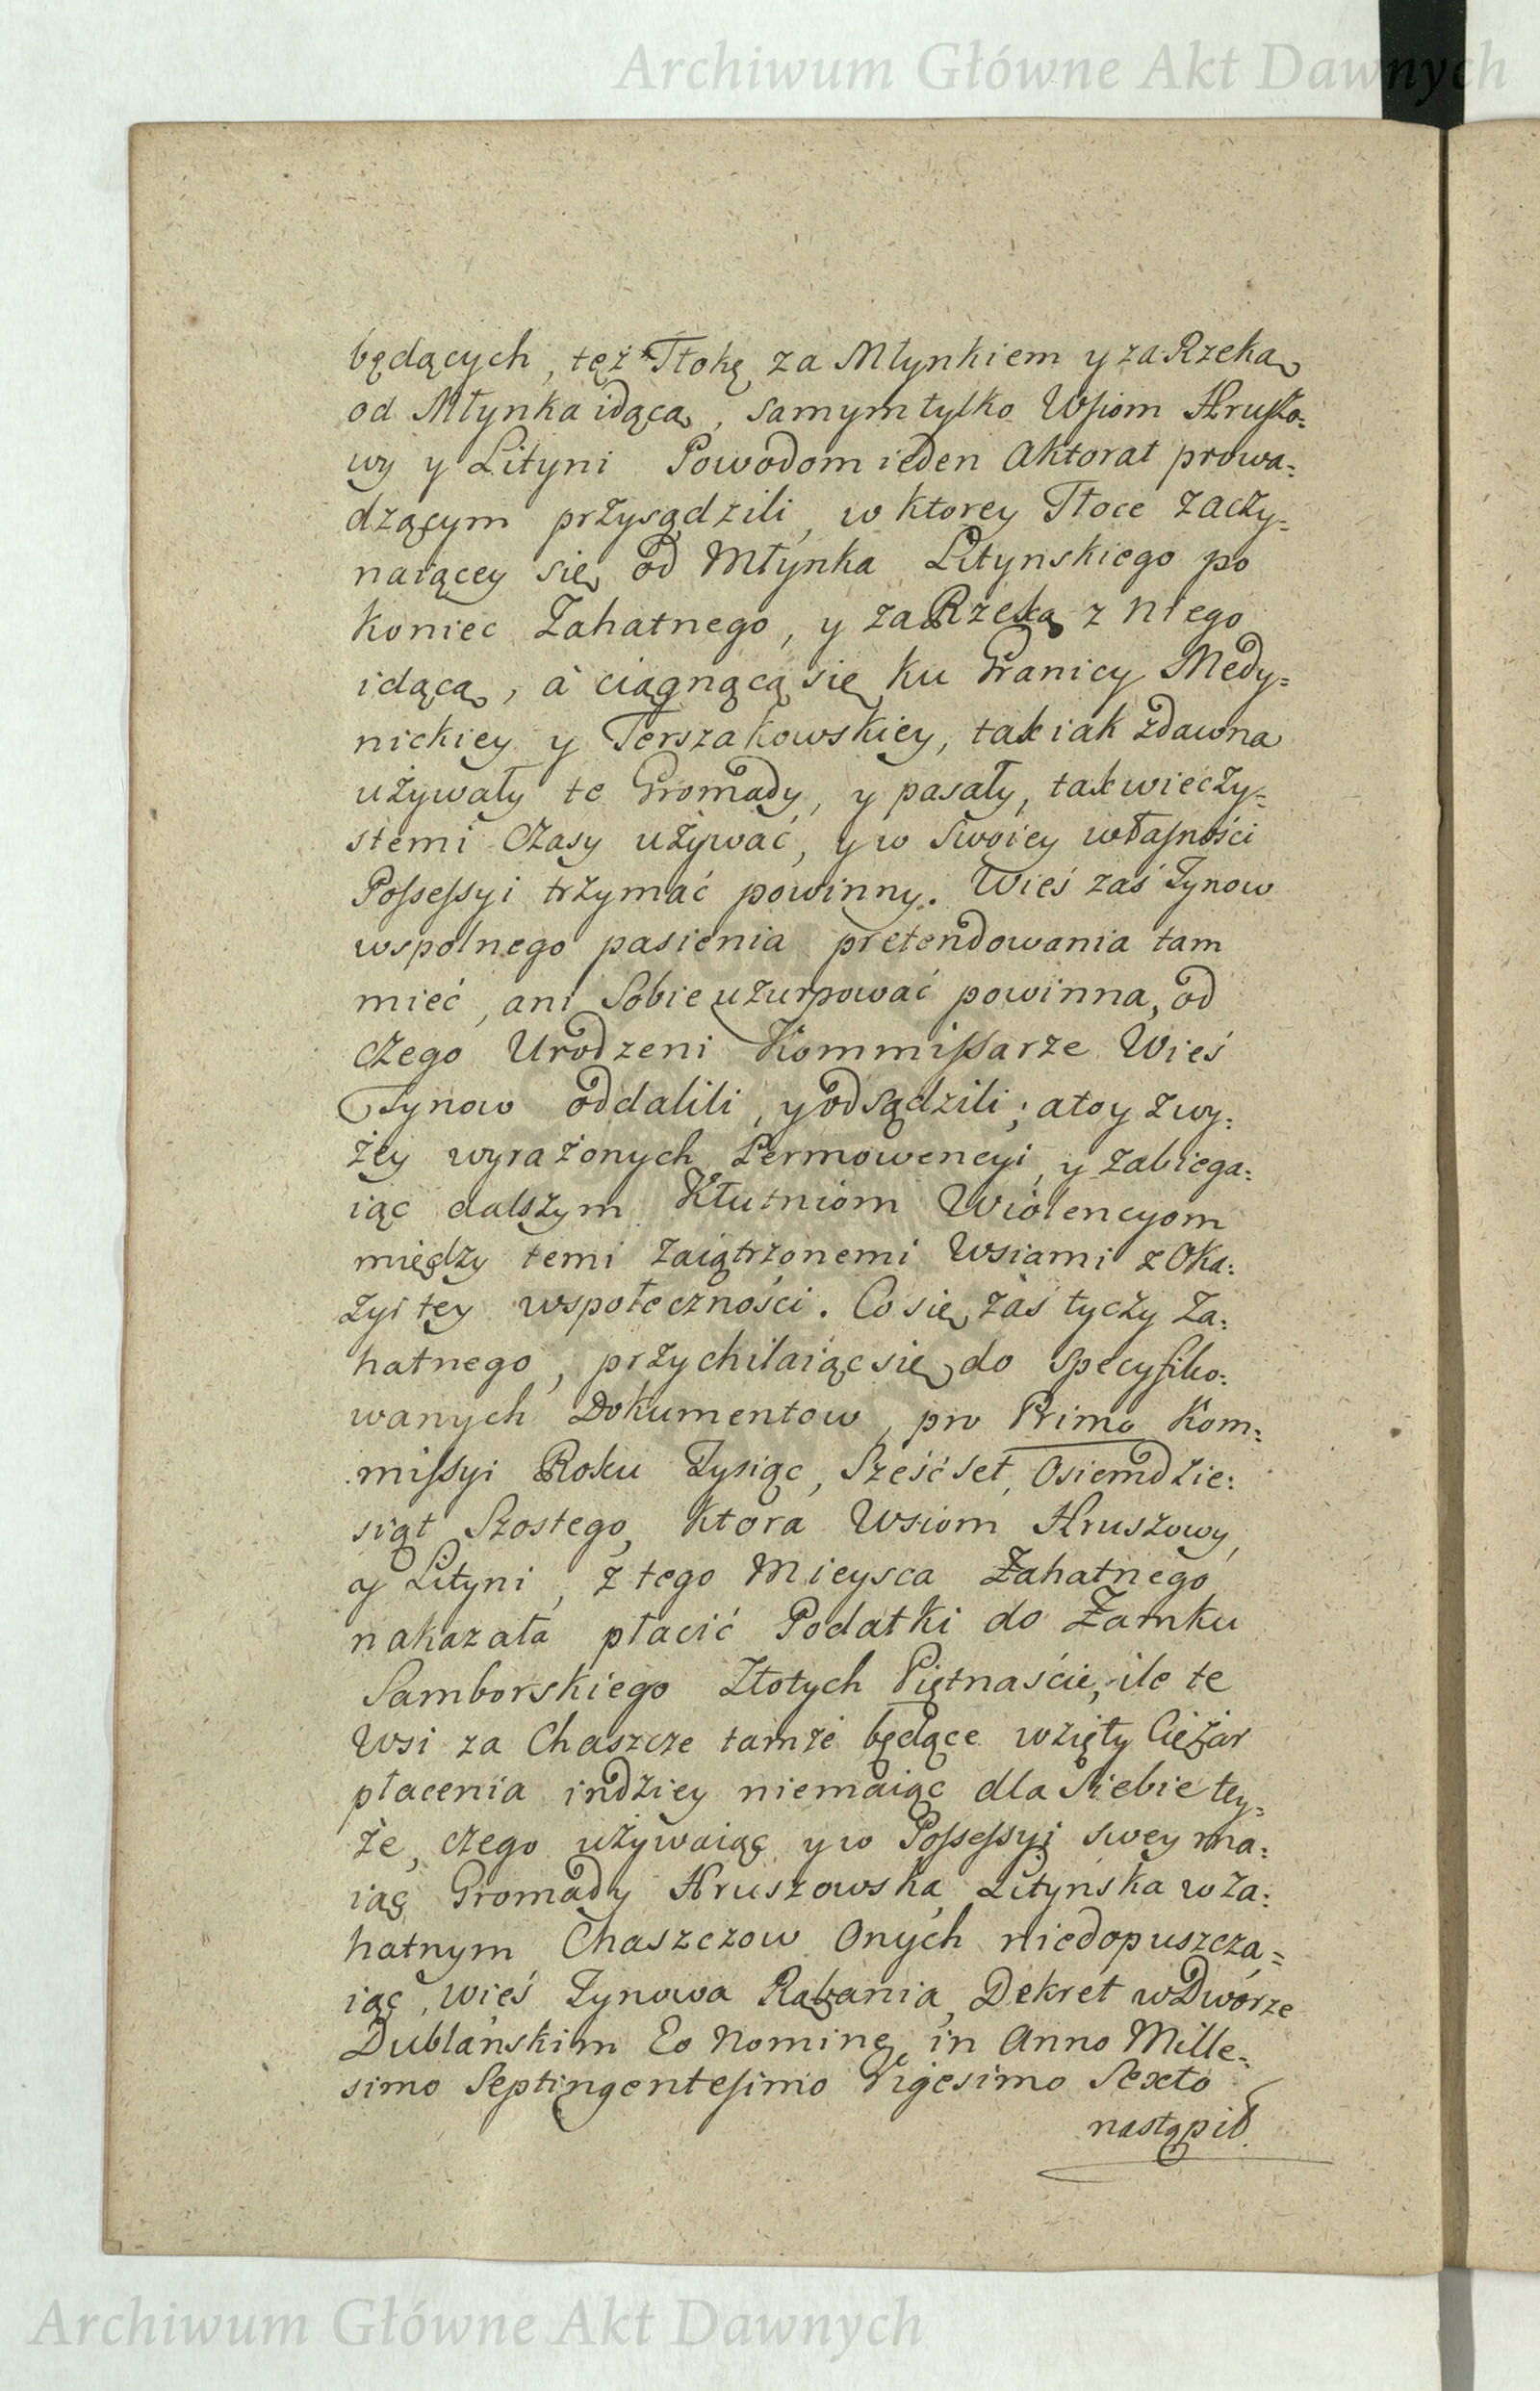 Archiwum Główne Akt Dawnych
będących, tęż Tłokę za Młynkiem y za Rzeką
od Młynka idącą, samym tylko Wsiom Hruszo=
wy y Lityni Powodom ieden Aktorat prowa=
dzącym przysądzili, w ktorey Tłoce zaczy=
naiącey się od Młynka Litynskiego po
koniec Zahatnego, y za Rzeką z niego
idącą, à ciągnącą się ku Granicy Medy=
nickiey y Terszakowskiey, tak iak zdawna
używały te Gromady, y pasały, tak wieczy=
stemi Czasy używać, y w swoiey własności
Possessyi trzymać powinny. Wieś zaś Tynow
wspolnego pasienia pretendowania tam
mieć, ani Sobie uzurpować powinna, od
czego Urodzeni Kommissarze Wieś
Tynow oddalili, y odsądzili; a to y z wy=
żey wyrażonych Permowencyi, y zabiega=
iąc dalszym Kłutniom Wiolencyom
między temi zaiątrzonemi Wsiami z Oka=
zyi tey wspołeczności. Co się zaś tyczy Za=
hatnego, przychilaiąc się do specyfiko=
wanych Dokumentow, pro Primo Kom=
missyi Roku Tysiąc, Sześćset, Osiemdzie=
siąt Szostego, ktora Wsiom Hruszowy,
y Lityni, z tego Mieysca Zahatnego
nakazała płacić Podatki do Zamku
Samborskiego Złotych Piętnaście, ile te
Wsi za Chaszcze tamże będące wzięły Ciężar
płacenia indziey niemaiąc dla Siebie tey=
że, czego używaiąc y w Possessyi swey ma=
iąc Gromady Hruszowska, Litynska w Za=
hatnym Chaszczow Onych niedopuszcza=
iąc, wieś Tynowa Rabania, Dekret w Dworze
Dublanskim Eo Nomine, in Anno Mille=
simo Septingentesimo Vigesimo Sexto
nastąpił
Archiwum Główne Akt Dawnych